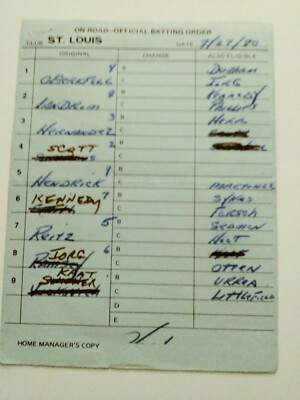 ON ROAD-OFFICIAL BATTING ORDER
CLUB ST. LOUIS DATE 7/27/80
ORIGINAL CHANGE ALSO ELIGIBLE
1 OBERKFELL 4 B DURHAM
C IORG
2 LANDRUM 8 B KENNEDY
C PHILLIPS
3 HERNANDEZ 3 B HERR
C
4 SCOTT 2 B
C
5 HENDRICK 9 B MARTINEZ
C SYKES
6 KENNEDY 7 B FORSCH
C SEAMAN
7 REITZ 5 B HOOD
C
8 IORG 6 B OTTEN
RAMSEY C URREA
9 KAAT B LITTLEFIELD
C
D
E
HOME MANAGER'S COPY